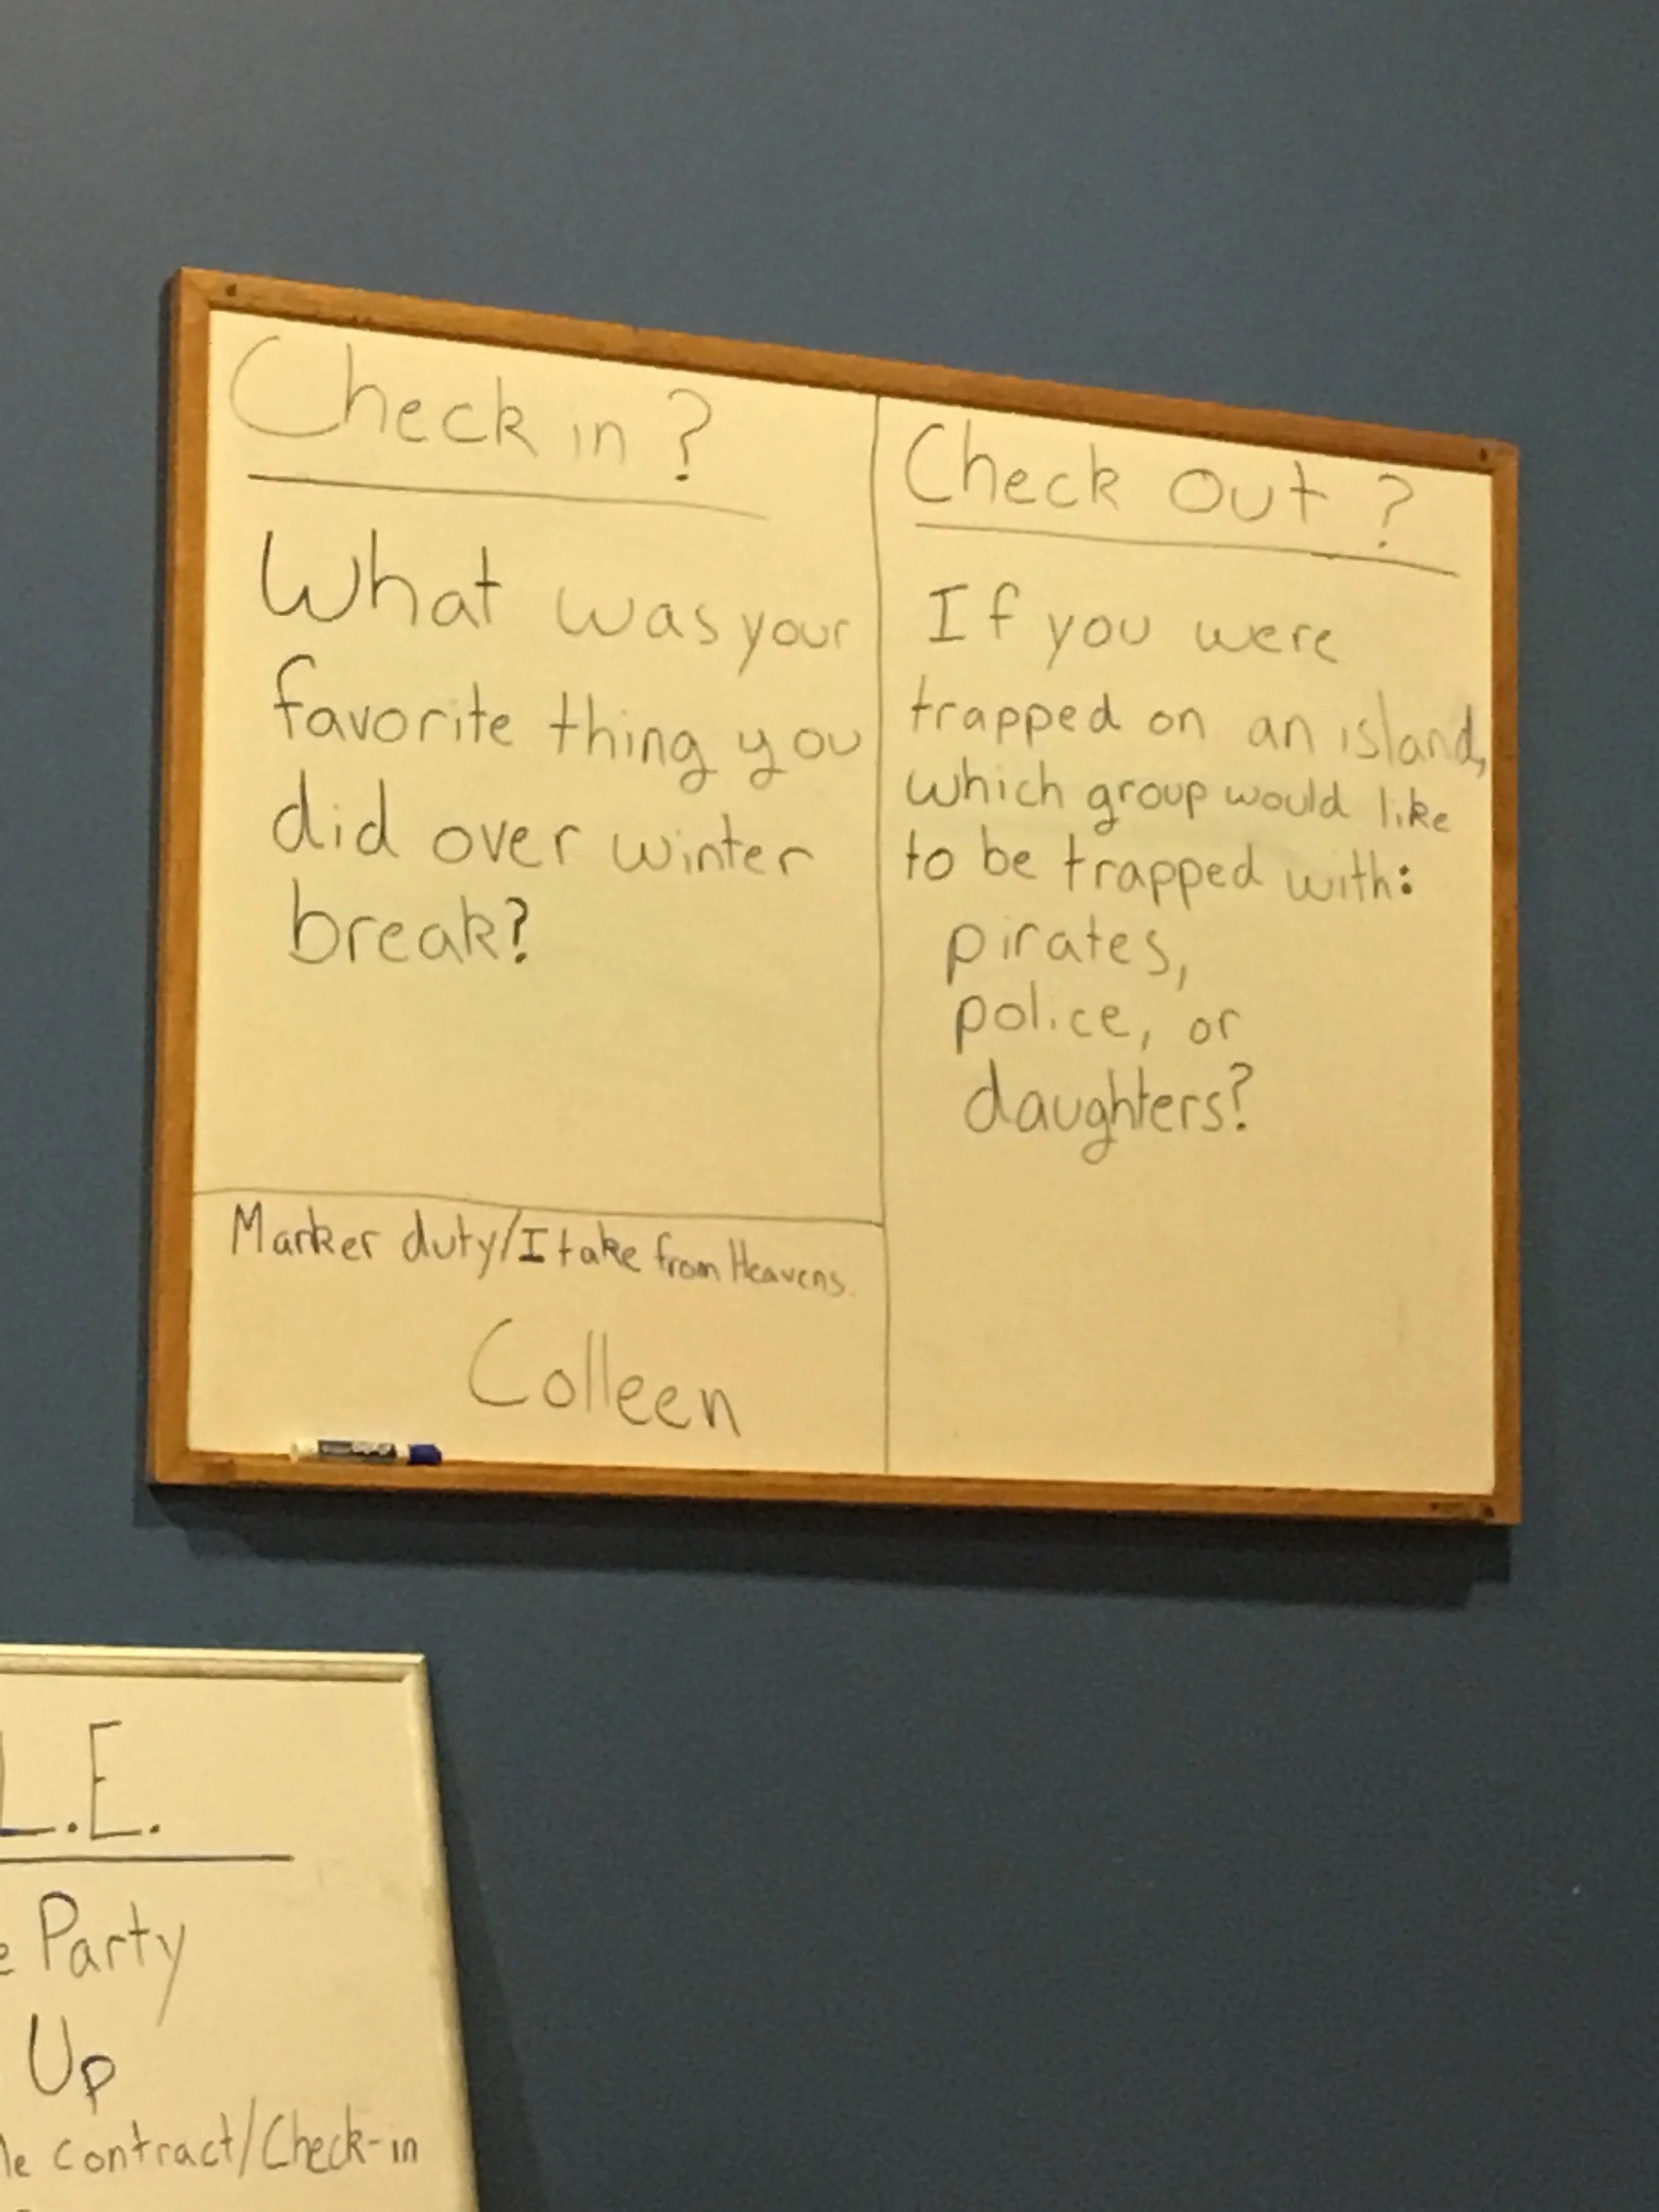 Check in ?
What was your
favorite thing you
did over winter
break?
Marker duty/I take from Heavens
Colleen
Check Out ?
If you were
trapped on an island,
which group would like
to be trapped with:
pirates,
police, or
daughters?
L.E.
Party
Up
contract/Check-in